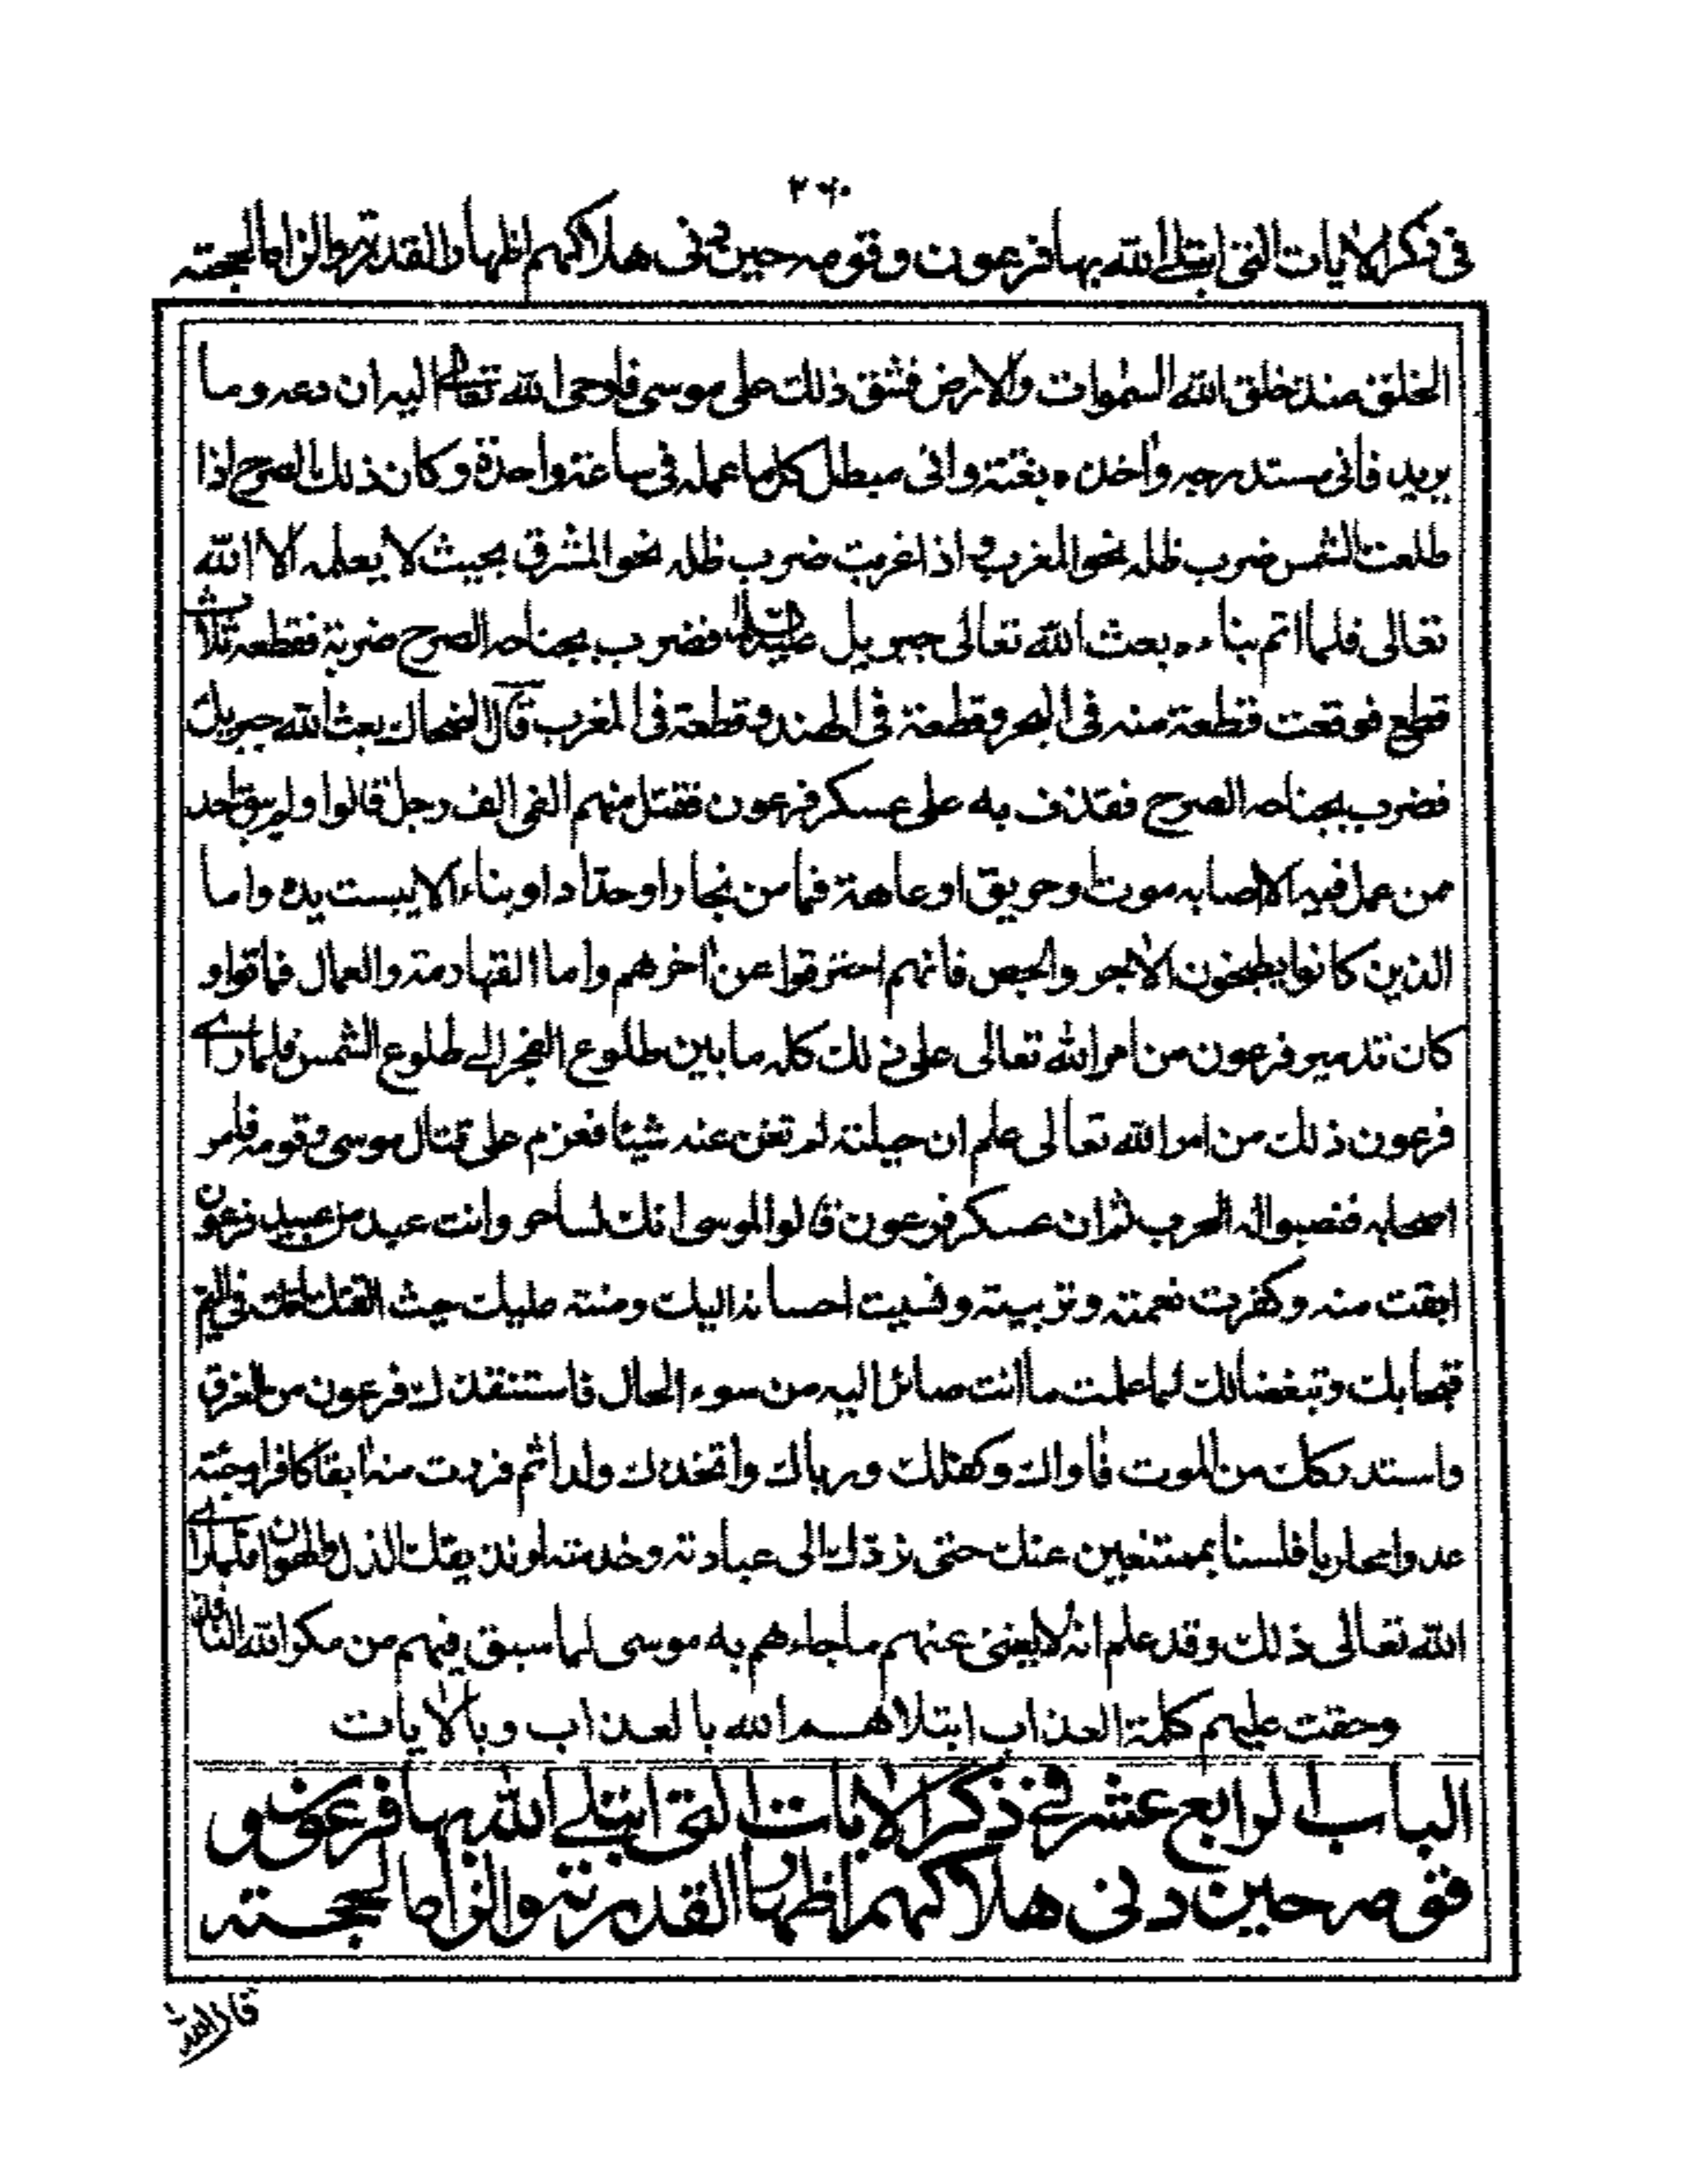 ٢٦٠
في ذكر الايات التي ابتلى الله بها فرعون وقومه حين دنى هلاكهم اظهارا لقدرته والزاما لحجته
الخلق منذ خلق الله السموات والارض فشق ذلك على موسى فاوحى الله تعالى اليه ان دعه وما
يريد فاني مستدرجه واخذه بغتة واني مبطل كل ما عمله في ساعة واحدة وكان ذلك الصرح اذا
طلعت الشمس ضرب ظله نحو المغرب واذا غربت ضرب ظله نحو المشرق بحيث لا يعلمه الا الله
تعالى فلما اتم بناءه بعث الله تعالى جبريل عليه السلام فضرب بجناحه الصرح ضربة فقطعه ثلاث
قطع فوقعت قطعة منه في البحر وقطعة في الهند وقطعة في المغرب قال الضحاك بعث الله جبريل
فضرب بجناحه الصرح فقذف به على عسكر فرعون فقتل منهم الفي الف رجل قالوا ولم يبق احد
من عمل فيه الا اصابه موت او حريق او عاهة فما من نجار او حداد او بناء الا يبست يده واما
الذين كانوا يطبخون الاجر والجص فانهم احترقوا عن اخرهم واما القهارمة والعمال فماتوا و
كان تدمير فرعون من امر الله تعالى على ذلك كله ما بين طلوع الفجر الى طلوع الشمس فلما راى
فرعون ذلك من امر الله تعالى علم ان حيلته لم تغن عنه شيئا فعزم على قتال موسى وقومه فامر
اصحابه فنصبوا اله الحرب ثم ان عسكر فرعون قالوا لموسى انك لساحر وانت عبد من عبيد فرعون
ابقت منه وكفرت نعمته وتربيته ونسيت احسانه اليك ومنته عليك حيث القتك امك في اليم
قبحا بك وتبغضا لك لما علمت ما انت صائر اليه من سوء الحال فاستنقذك فرعون من الغرق
واستدركك من الموت فاواك وكفلك ورباك واتخذك ولدا ثم فررت منه ابقا كافرا وجئته
عدوا محاربا فلسنا بممتنعين عنك حتى نردك الى عبادته وخدمته او نذيقك الذل والهوان فلما راى
الله تعالى ذلك وقد علم انه لا يغنى عنهم ما جاءهم به موسى لما سبق فيهم من مكر الله النافذ
وحقت عليهم كلمة العذاب ابتلاهم الله بالعذاب وبالايات
الباب الرابع عشر في ذكر الايات التي ابتلى الله بها فرعون و
قومه حين دنى هلاكهم اظهارا لقدرته والزاما لحجته
قال الله